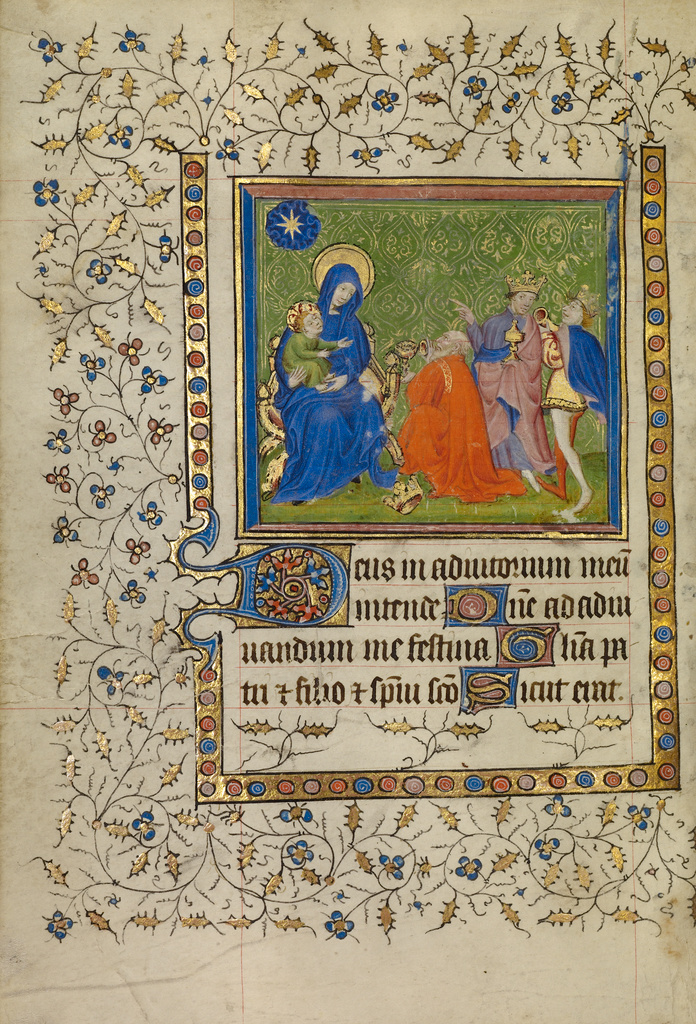 Deus in adiutorium meū
intende Dn̄e ad adiu
uandum me festina Gl̄ia pa
tri ⁊ filio ⁊ sp̄iui sc̄o Sicut erat.